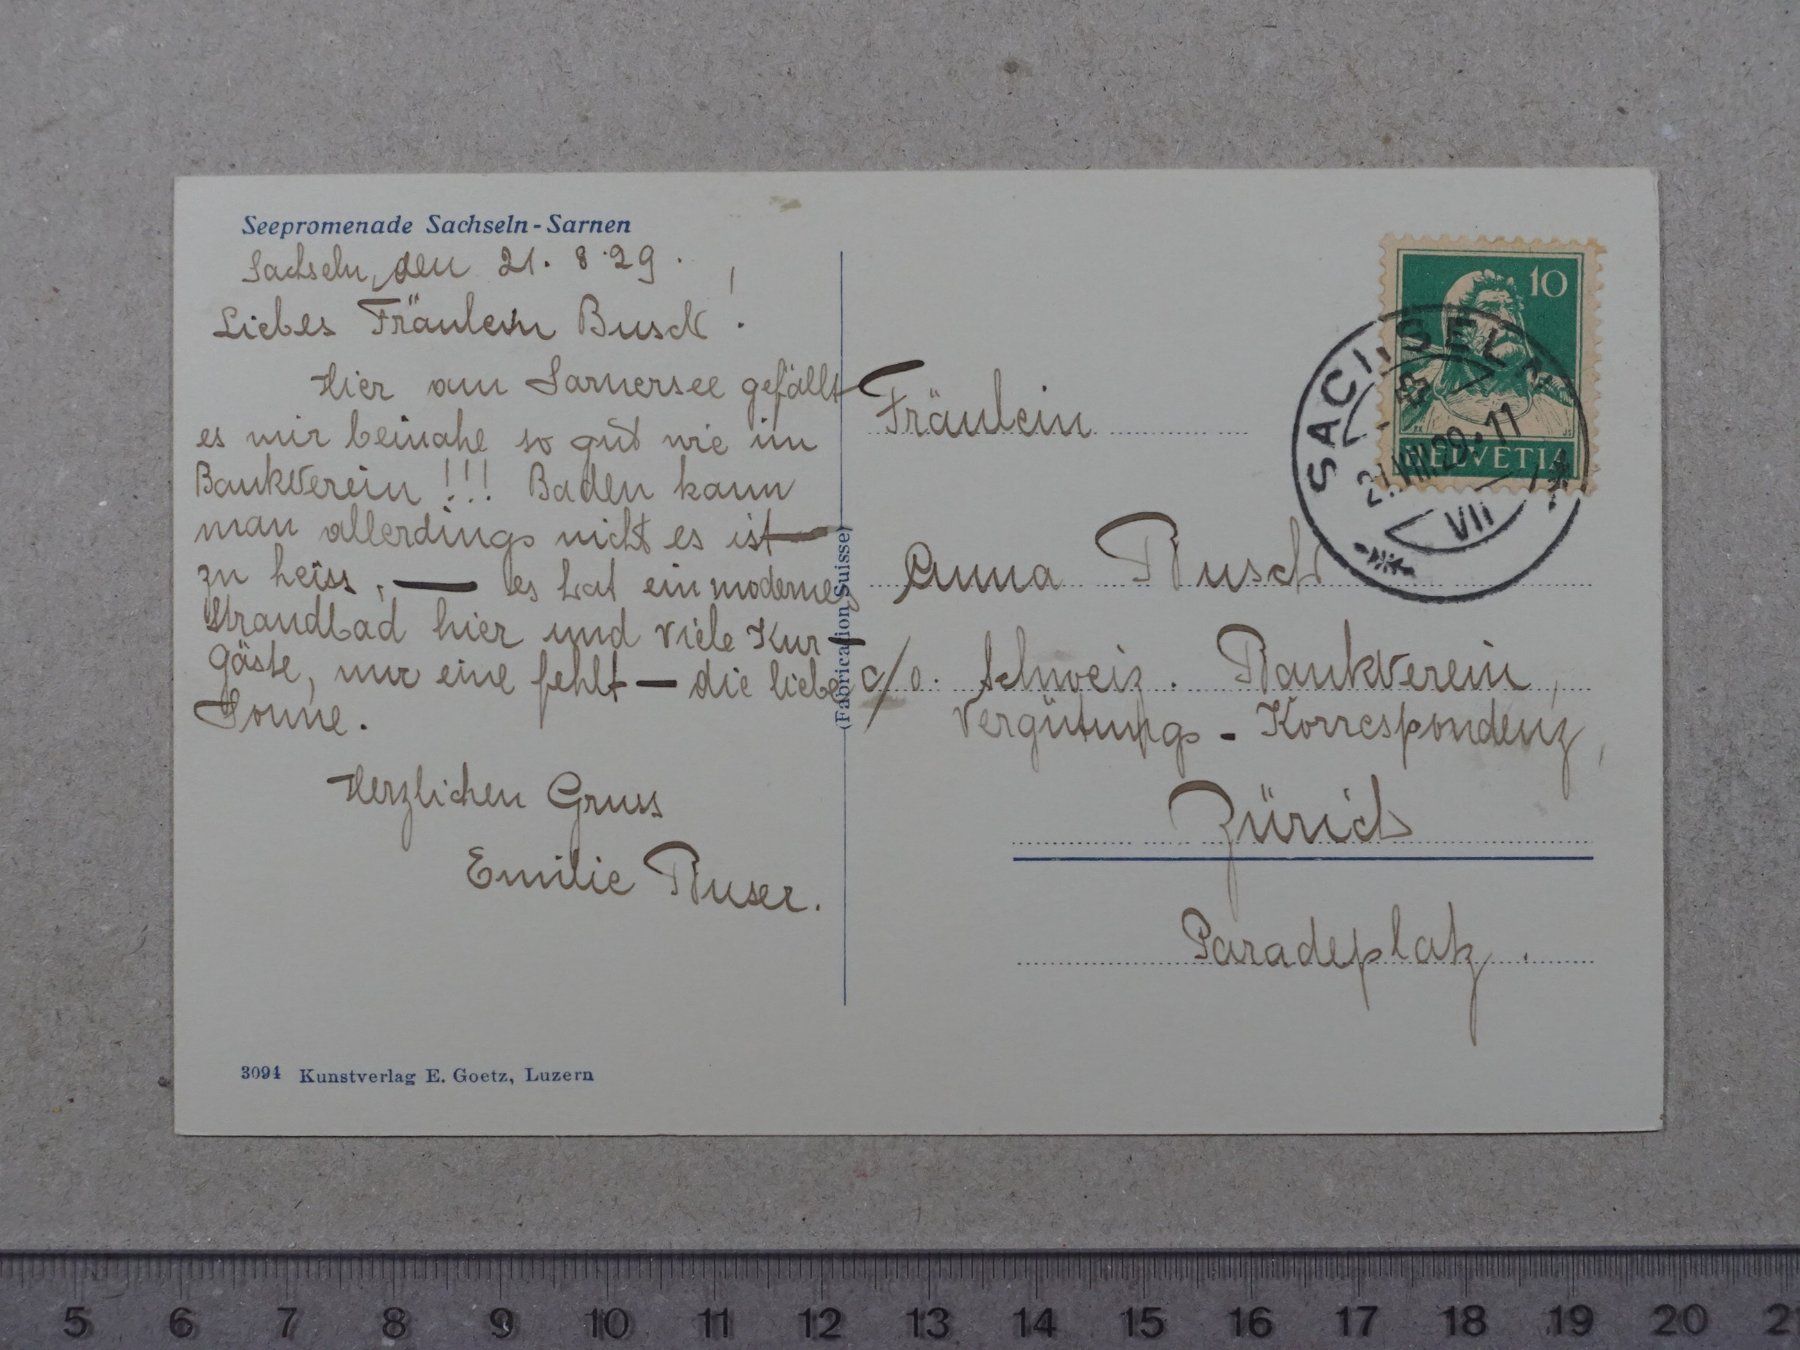 Seepromenade Sachseln-Sarnen
Sachseln, den 21. 8. 29.
Liebes Fräulein Busch!
Hier am Sarnersee gefällt
es mir beinahe so gut wie im
Bankverein!!! Baden kann
man allerdings nicht es ist —
zu heiss, — es hat ein modernes
Strandbad hier und viele Kur-
gäste, nur eine fehlt — die liebe
Sonne.
Herzlichen Gruss
Emilie Buser.
3094 Kunstverlag E. Goetz, Luzern
(Fabrication Suisse)
10
HELVETIA
SACHSELN
21.VIII.29·11
VII
Fräulein
Anna Busch
c/o. Schweiz. Bankverein,
Vergütungs-Korrespondenz,
Zürich
Paradeplatz.
5 6 7 8 9 10 11 12 13 14 15 16 17 18 19 20 21